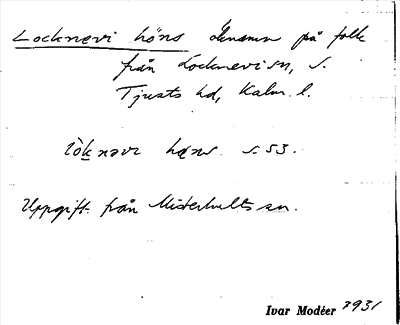 Locknevi höns öknamn på folk
från Locknevi sn, S.
Tjusts hd, Kalm. l.
lòknəvi høns. s. 53.
Uppgift från Misterhults sn.
Ivar Modéer 1931